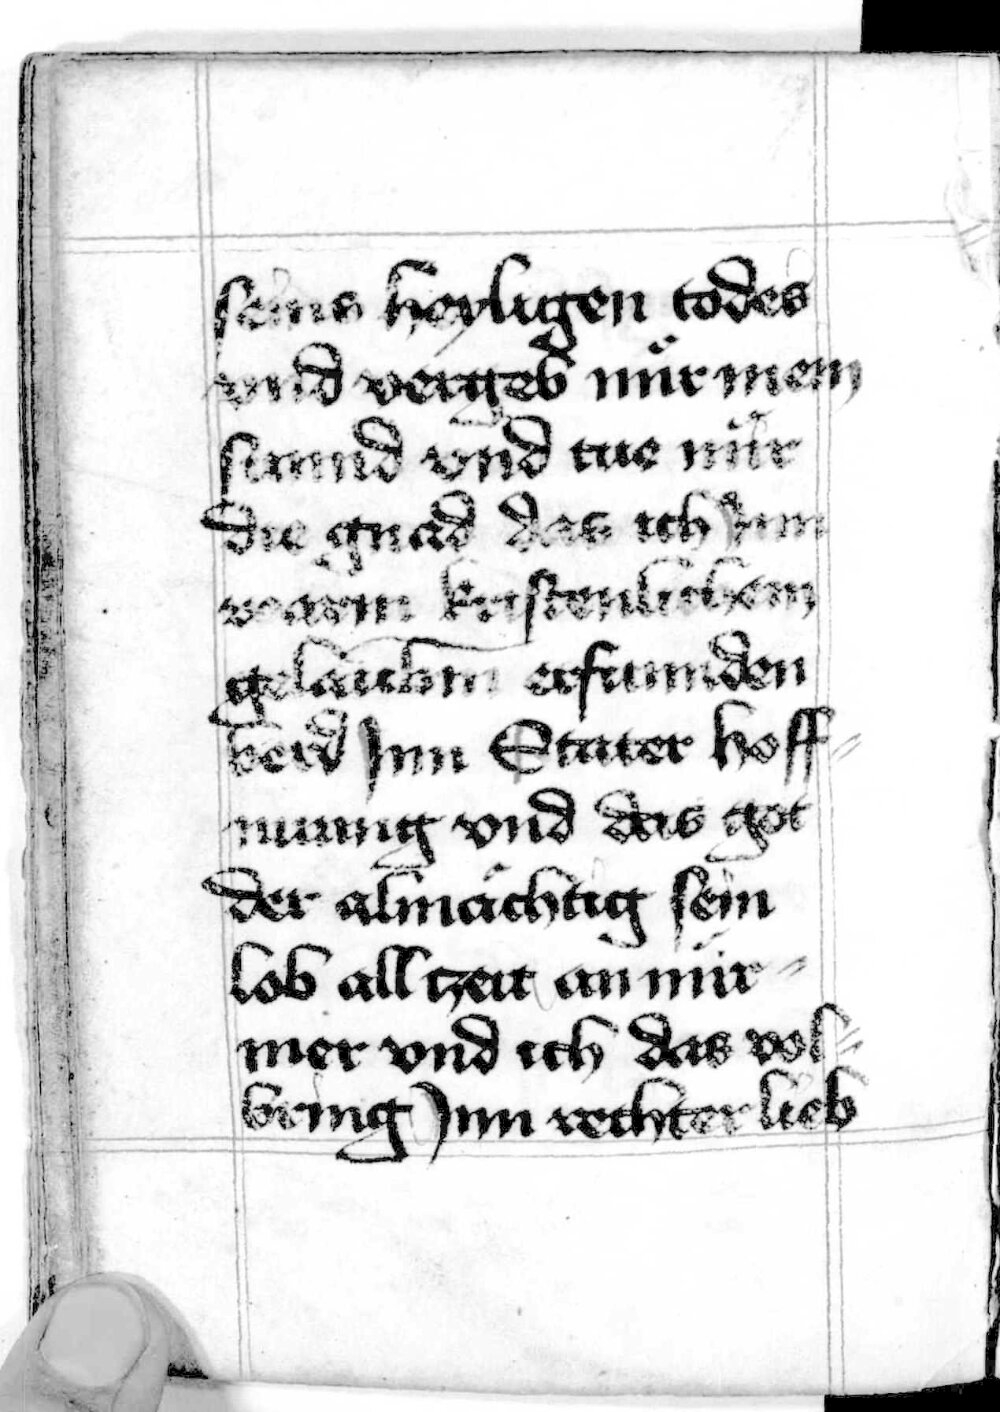 seins heyligen todes
vnd vergeb mir mein
sunnd vnd tue mir
die gnad das ich Jnn
warm kristenlichem
gelaubm erfunnden
berd Jnn Stater hoff=
nunng vnd das got
der almächtig sein
lob all tzeit an mir=
mer vnd ich das vol=
bring Jnn rechter lieb